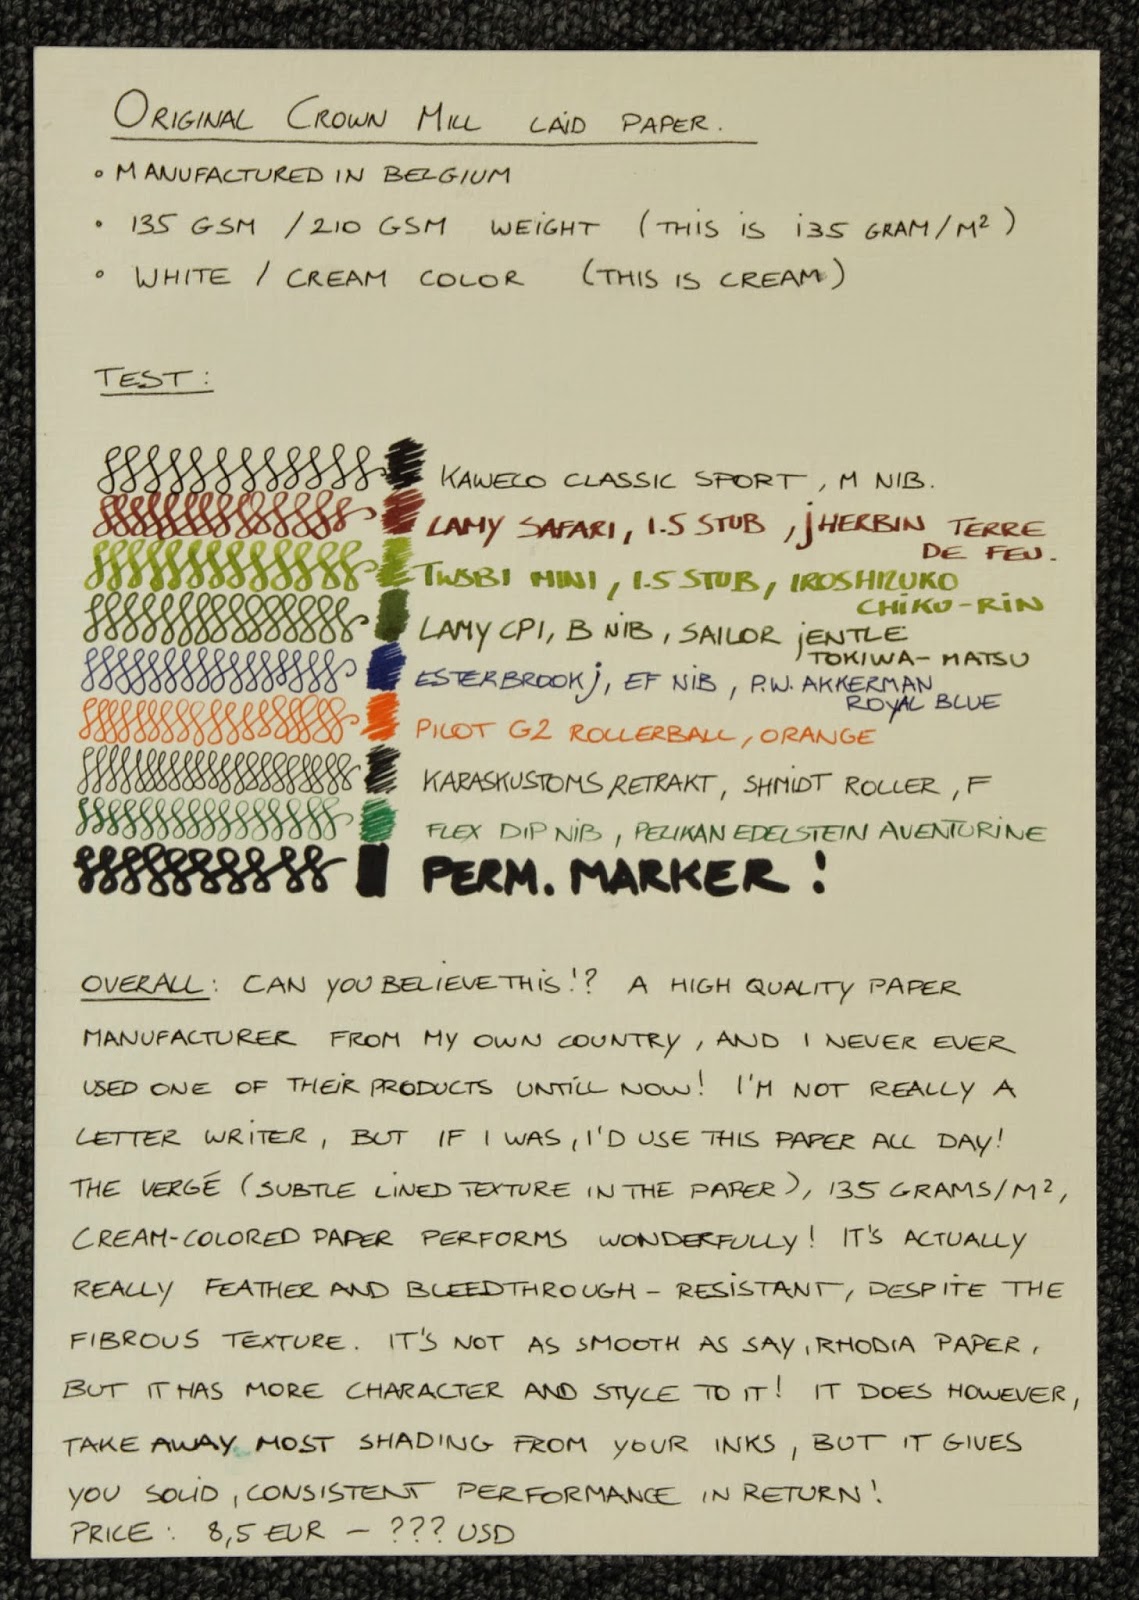 ORIGINAL CROWN MILL LAID PAPER.
• MANUFACTURED IN BELGIUM
• 135 GSM / 210 GSM WEIGHT (THIS IS 135 GRAM/M²)
• WHITE / CREAM COLOR (THIS IS CREAM)
TEST:
KAWECO CLASSIC SPORT, M NIB.
LAMY SAFARI, 1.5 STUB, JHERBIN TERRE
DE FEU.
TWSBI MINI, 1.5 STUB, IROSHIZUKO
CHIKU-RIN
LAMY CP1, B NIB, SAILOR JENTLE
TOKIWA-MATSU
ESTERBROOK J, EF NIB, P.W. AKKERMAN
ROYAL BLUE
PILOT G2 ROLLERBALL, ORANGE
KARASKUSTOMS RETRAKT, SHMIDT ROLLER, F
FLEX DIP NIB, PELIKAN EDELSTEIN AVENTURINE
PERM. MARKER!
OVERALL: CAN YOU BELIEVE THIS!? A HIGH QUALITY PAPER
MANUFACTURER FROM MY OWN COUNTRY, AND I NEVER EVER
USED ONE OF THEIR PRODUCTS UNTILL NOW! I'M NOT REALLY A
LETTER WRITER, BUT IF I WAS, I'D USE THIS PAPER ALL DAY!
THE VERGÉ (SUBTLE LINED TEXTURE IN THE PAPER), 135 GRAMS/M²,
CREAM-COLORED PAPER PERFORMS WONDERFULLY! IT'S ACTUALLY
REALLY FEATHER AND BLEEDTHROUGH-RESISTANT, DESPITE THE
FIBROUS TEXTURE. IT'S NOT AS SMOOTH AS SAY, RHODIA PAPER,
BUT IT HAS MORE CHARACTER AND STYLE TO IT! IT DOES HOWEVER,
TAKE AWAY MOST SHADING FROM YOUR INKS, BUT IT GIVES
YOU SOLID, CONSISTENT PERFORMANCE IN RETURN!
PRICE: 8,5 EUR - ??? USD